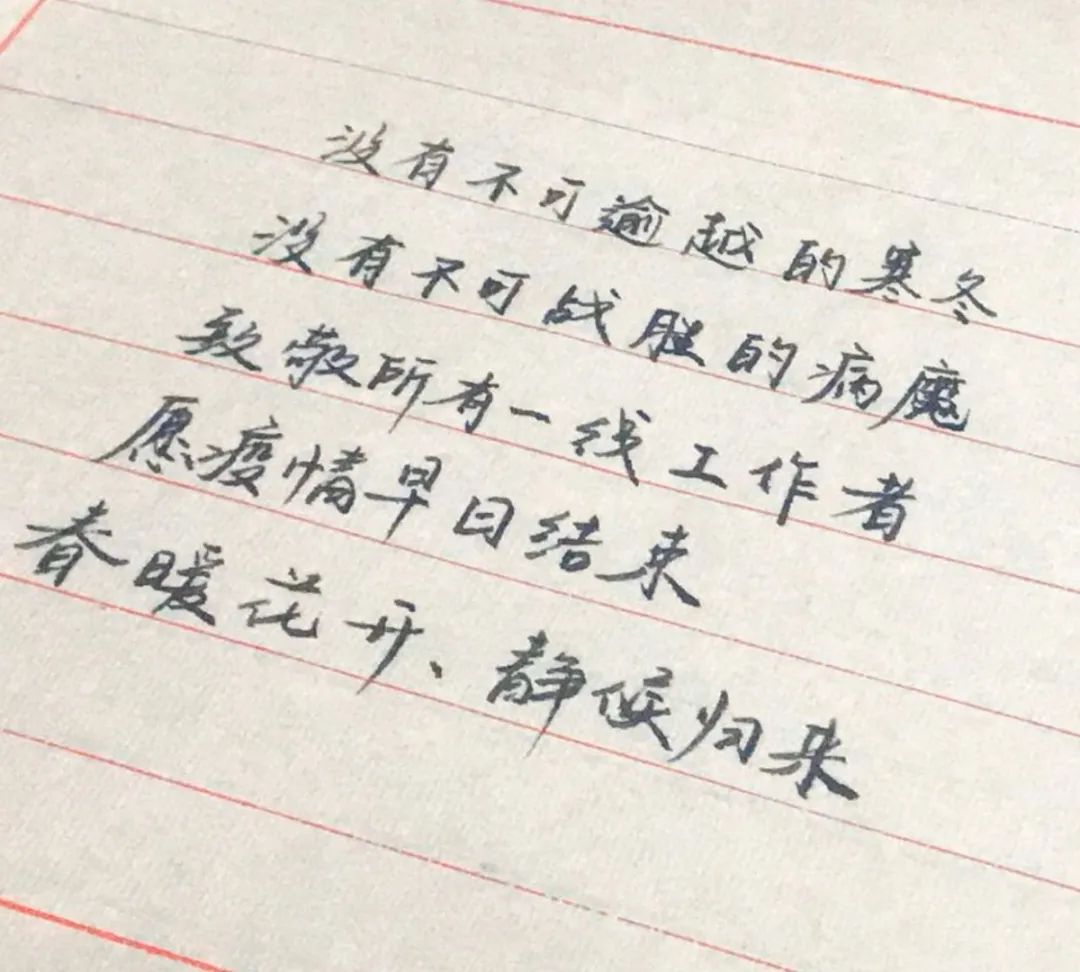 没有不可逾越的寒冬
没有不可战胜的病魔
致敬所有一线工作者
愿疫情早日结束
春暖花开、静候归来